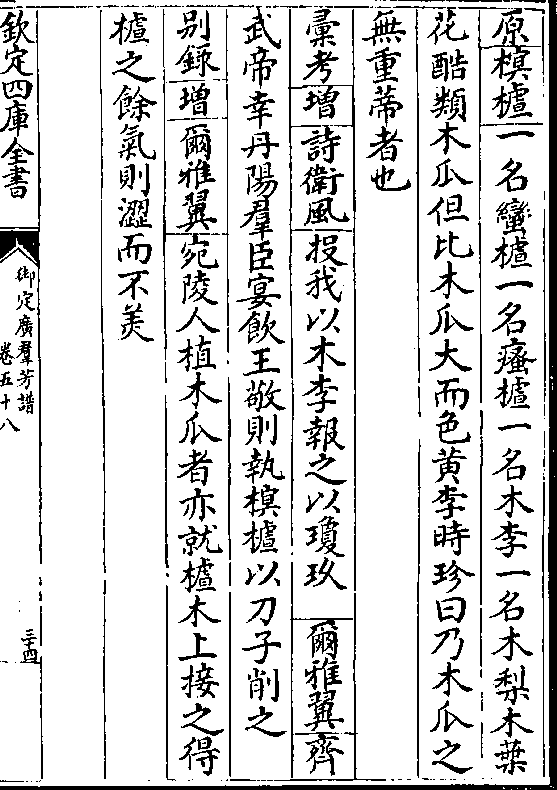 原榠樝一名蠻樝一名瘙樝一名木李一名木梨木葉
花酷類木瓜但比木瓜大而色黄李時珍曰乃木瓜之
無重蔕者也
彚考增詩衛風投我以木李報之以瓊玖 爾雅翼齊
武帝幸丹陽羣臣宴飲王敬則執榠樝以刀子削之
别錄增爾雅翼宛陵人植木瓜者亦就樝木上接之得
樝之餘氣則澀而不羙
欽定四庫全書
御定廣羣芳譜
卷五十八
三十四